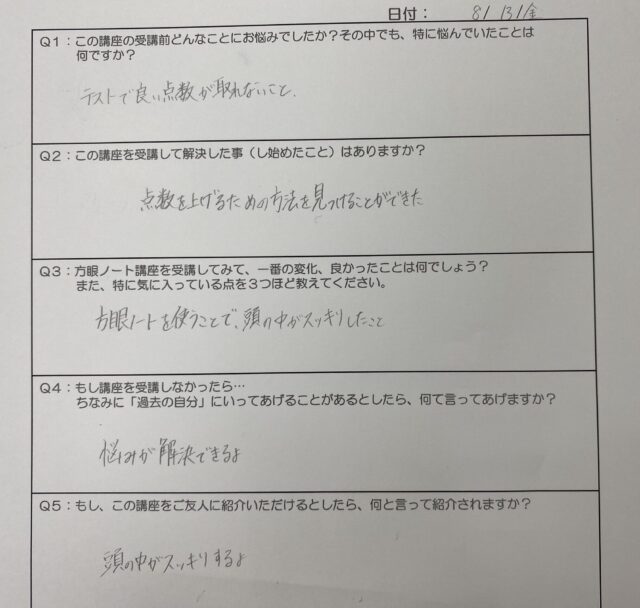 日付： 8/13/金
Q1：この講座の受講前どんなことにお悩みでしたか？その中でも、特に悩んでいたことは
何ですか？
テストで良い点数が取れないこと.
Q2：この講座を受講して解決した事（し始めたこと）はありますか？
点数を上げるための方法を見つけることができた
Q3：方眼ノート講座を受講してみて、一番の変化、良かったことは何でしょう？
また、特に気に入っている点を３つほど教えてください。
方眼ノートを使うことで、頭の中がスッキリしたこと
Q4：もし講座を受講しなかったら…
ちなみに「過去の自分」にいってあげることがあるとしたら、何て言ってあげますか？
悩みが解決できるよ
Q5：もし、この講座をご友人に紹介いただけるとしたら、何と言って紹介されますか？
頭の中がスッキリするよ